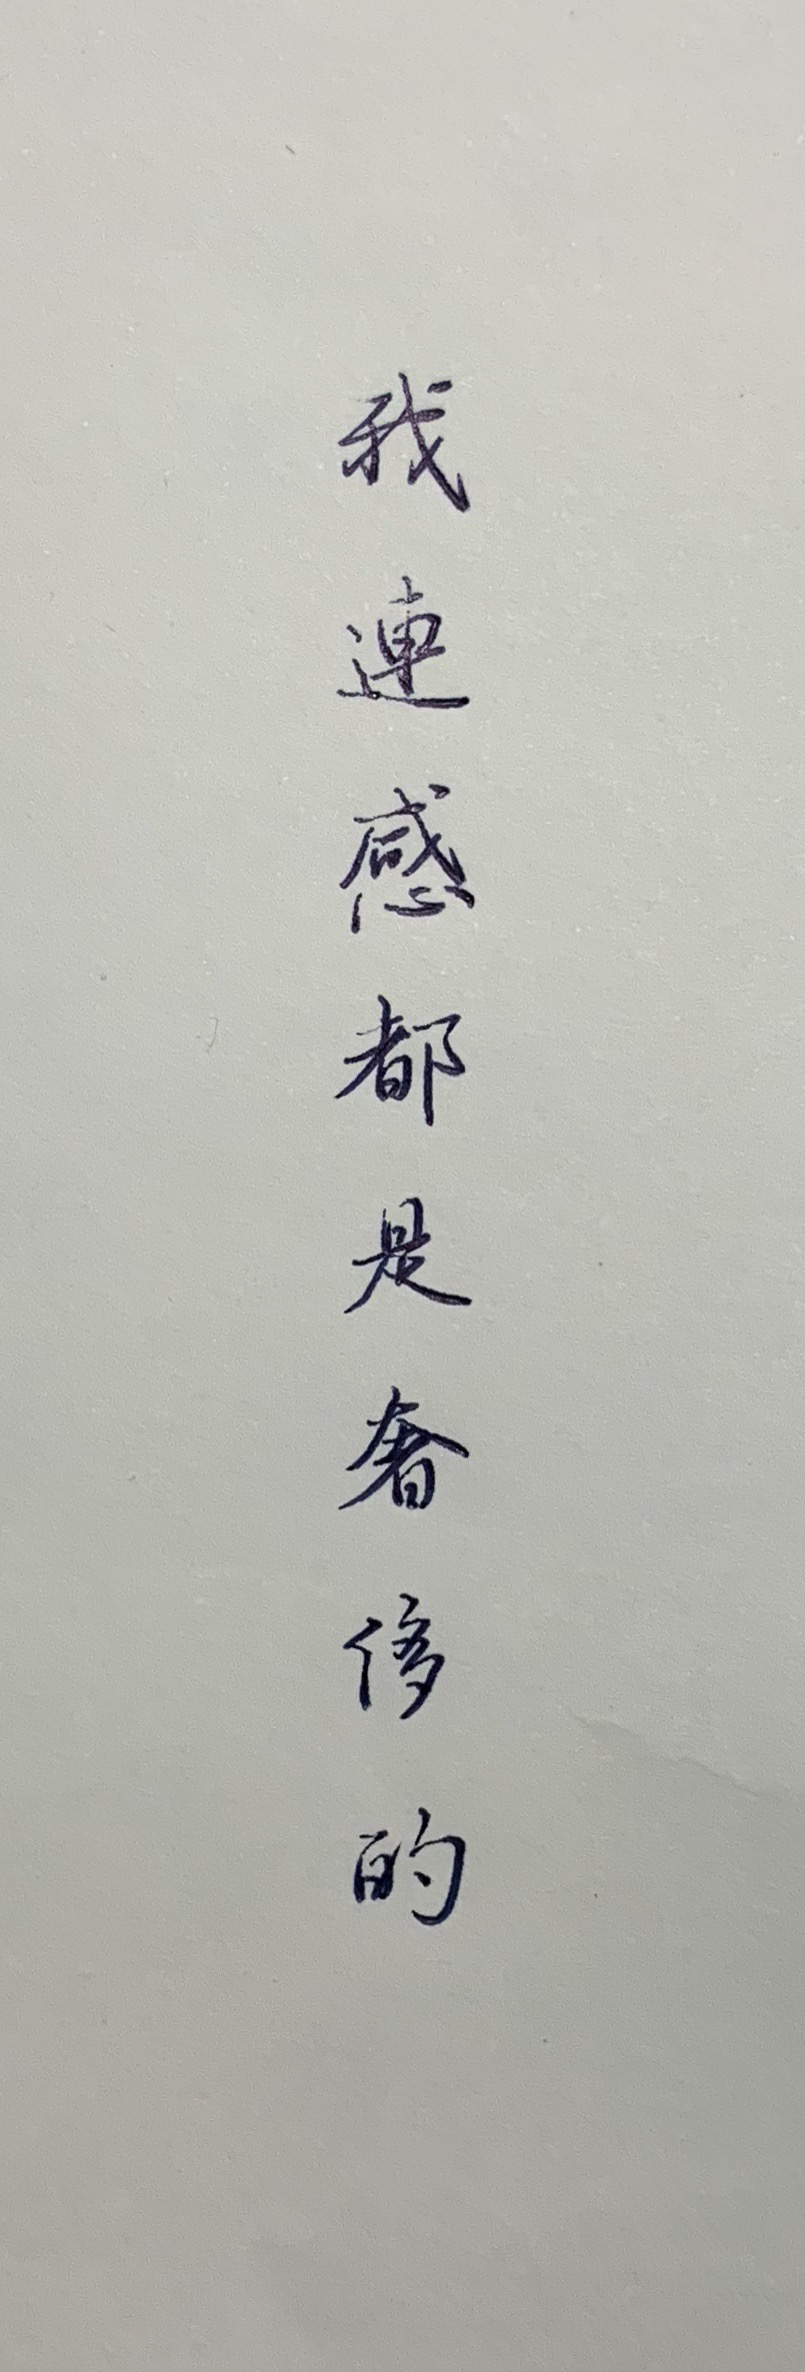 我連感都是奢侈的